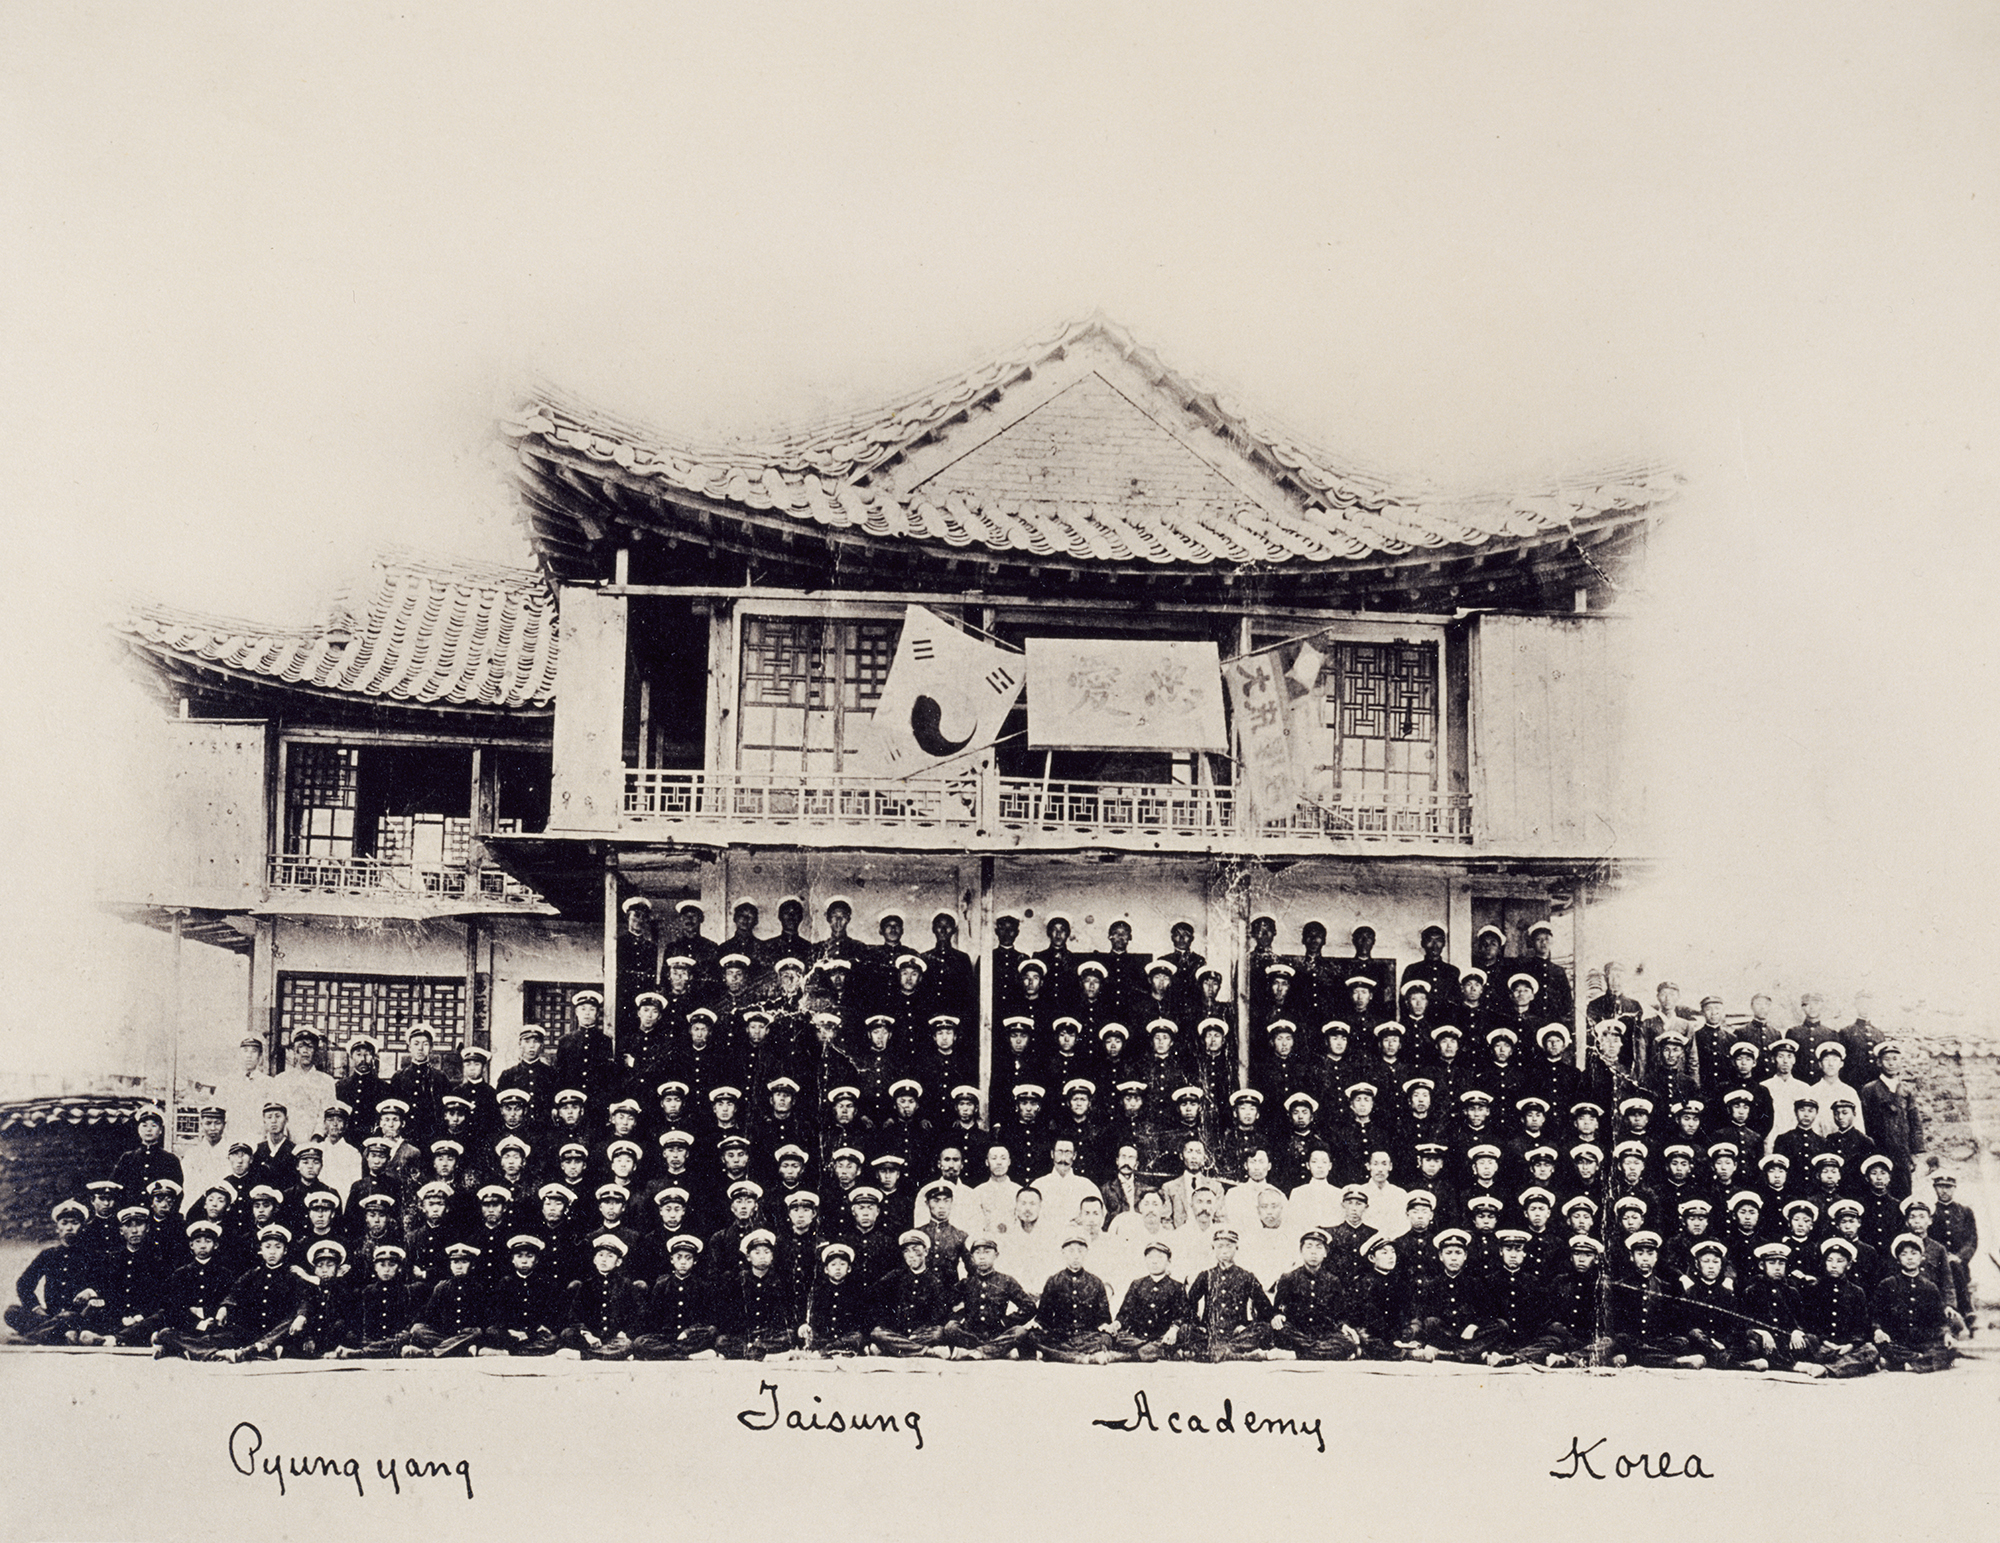 忠愛
大成學校
Pyungyang Taisung Academy Korea